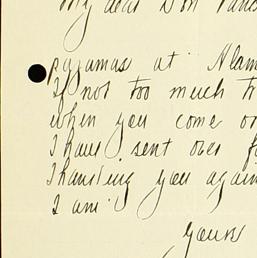 My dear Don
pajamas at Alam
If not too much tr
when you come o
I have sent over f
Thanking you again
I am
yours